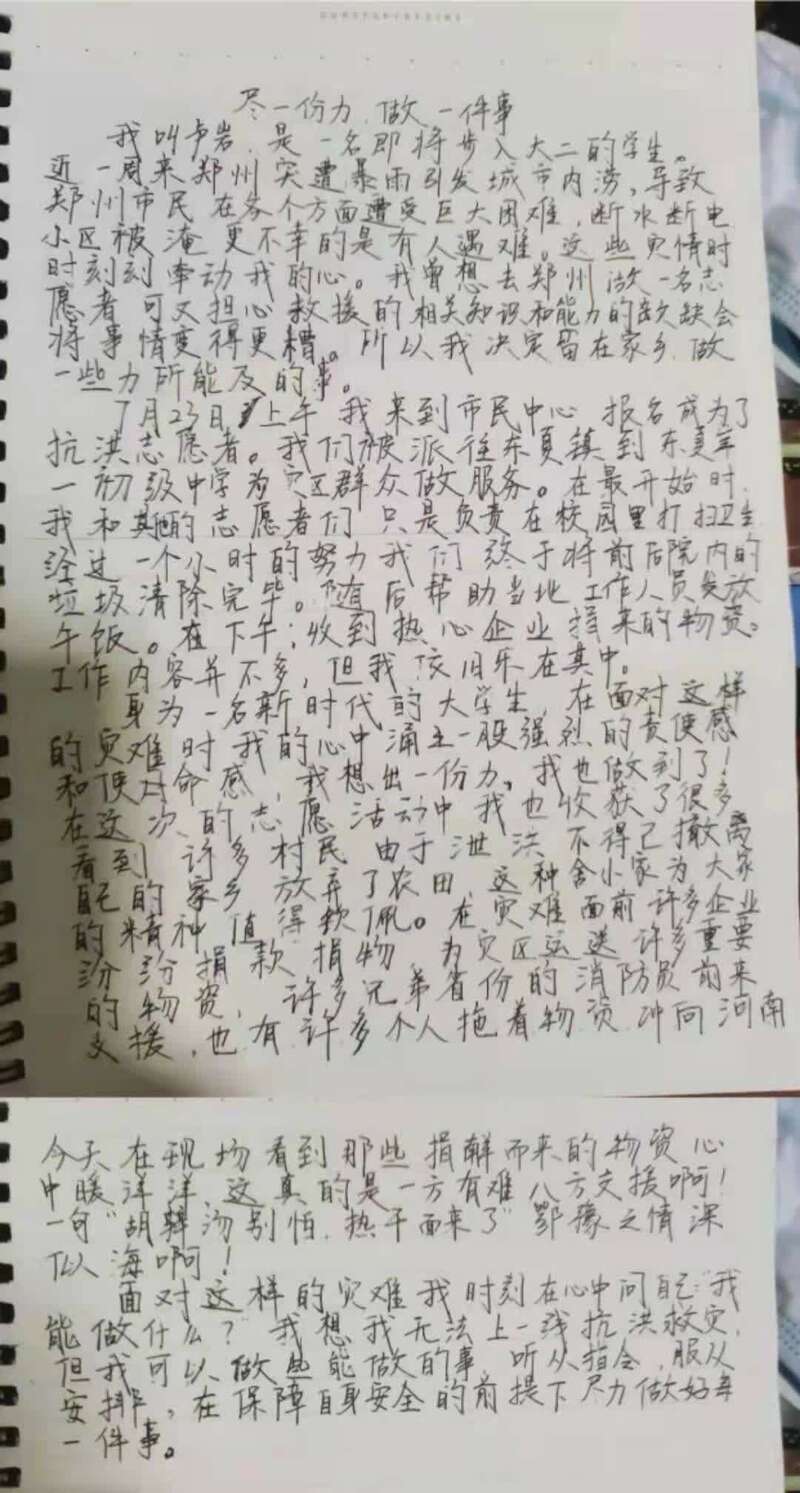 尽一份力.做一件事
我叫卢岩,是一名即将步入大二的学生。
近一周来郑州突遭暴雨引发城市内涝,导致
郑州市民在各个方面遭受巨大困难,断水断电
小区被淹更不幸的是有人遇难。这些灾情时
时刻刻牵动我的心。我曾想去郑州做一名志
愿者可又担心救援的相关知识和能力的欠缺会
将事情变得更糟。所以我决定留在家乡.做
一些力所能及的事。
7月23日上午我来到市民中心报名成为了
抗洪志愿者。我们被派往东 镇到东
一初级中学为灾区群众做服务。在最开始时.
我和其他的志愿者们只是负责在校园里打扫卫生
经过一个小时的努力我们终于将前后院内的
垃圾清除完毕。随后帮助当地工作人员发放
午饭。在下午;收到热心企业捐来的物资。
工作内容并不多,但我依旧乐在其中。
身为一名新时代的大学生,在面对这样
的灾难时我的心中涌上一股强烈的责使感
和使命感,我想出一份力,我也做到了!
在这次的志愿活动中我也收获了很多
看到许多村民由于泄洪不得已撤离
自己的家乡放弃了农田,这种舍小家为大家
的精神值得钦佩。在灾难面前许多企业
纷纷捐款捐物,为灾区运送许多重要
的物资,许多兄弟省份的消防员前来
支援,也有许多个人拖着物资冲向河南
今天在现场看到那些捐献而来的物资心
中暖洋洋,这真的是一方有难八方支援啊!
一句"胡辣汤别怕.热干面来了"鄂豫之情深
似海啊!
面对这样的灾难我时刻在心中问自己"我
能做什么?"我想我无法上一线抗洪救灾,
但我可以做些能做的事,听从指令,服从
安排,在保障自身安全的前提下尽力做好每
一件事。